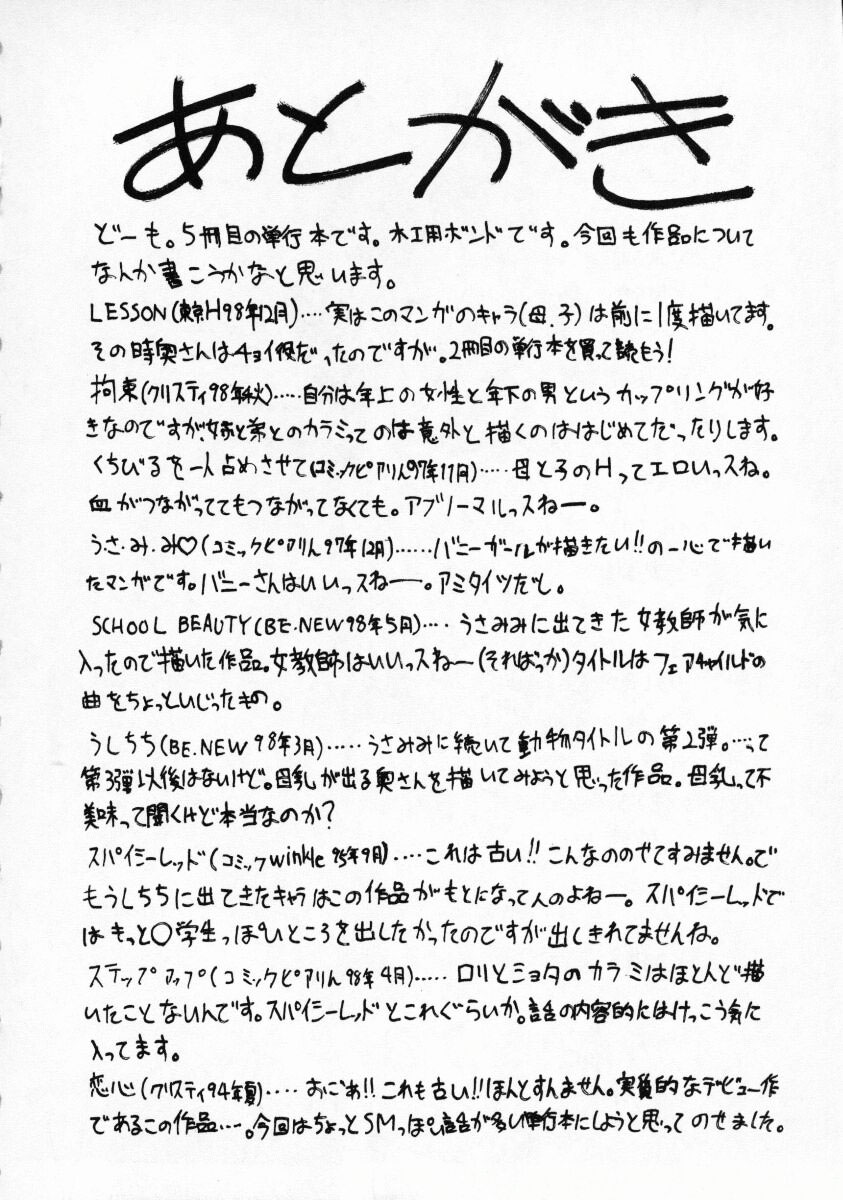 あとがき
どーも。5冊目の単行本です。木工用ボンドです。今回も作品について
なんか書こうかなと思います。
LESSON(東京H98年12月)‥‥実はこのマンガのキャラ(母、子)は前に1度描いてます。
その時奥さんはチョイ役だったのですが。2冊目の単行本を買って読もう!
拘束(クリスティ98年秋)‥‥‥自分は年上の女性と年下の男というカップリングが好
きなのですが、姉と弟とのカラミってのは意外と描くのははじめてだったりします。
くちびるを一人占めさせて(コミックピアリん97年11月)‥‥‥母と子のHってエロいっスね。
血がつながっててもつながってなくても。アブノーマルっスねー。
うさ・み・み♡(コミックピアリん97年12月)‥‥‥バニーガールが描きたい!!の一心で描い
たマンガです。バニーさんはいいっスねー。アミタイツだし。
SCHOOL BEAUTY(BE.NEW98年5月)‥‥うさみみに出てきた女教師が気に
入ったので描いた作品。女教師はいいっスねー(そればっか)タイトルはフェアチャイルドの
曲をちょっといじったもの。
うしちち(BE.NEW98年3月)‥‥‥うさみみに続いて動物タイトルの第2弾。‥‥って
第3弾以後はないけど。母乳が出る奥さんを描いてみようと思った作品。母乳って不
美味って聞くけど本当なのか?
スパイシーレッド(コミックwinkle95年9月)‥‥これは古い!!こんなののせてすみません。で
もうしちちに出てきたキャラはこの作品がもとになってんのよねー。スパイシーレッドで
はきっと○学生っぽいところを出したかったのですが出しきれてませんね。
ステップアップ(コミックピアリん98年4月)‥‥‥ロリとショタのカラミはほとんど描
いたことないんです。スパイシーレッドとこれぐらいか。話の内容的にはけっこう気に
入ってます。
恋心(クリスティ94年夏)‥‥おにょ!!これも古い!!ほんとすんません。実質的なデビュー作
であるこの作品‥‥。今回はちょっとSMっぽい話が多い単行本にしようと思ってのせました。